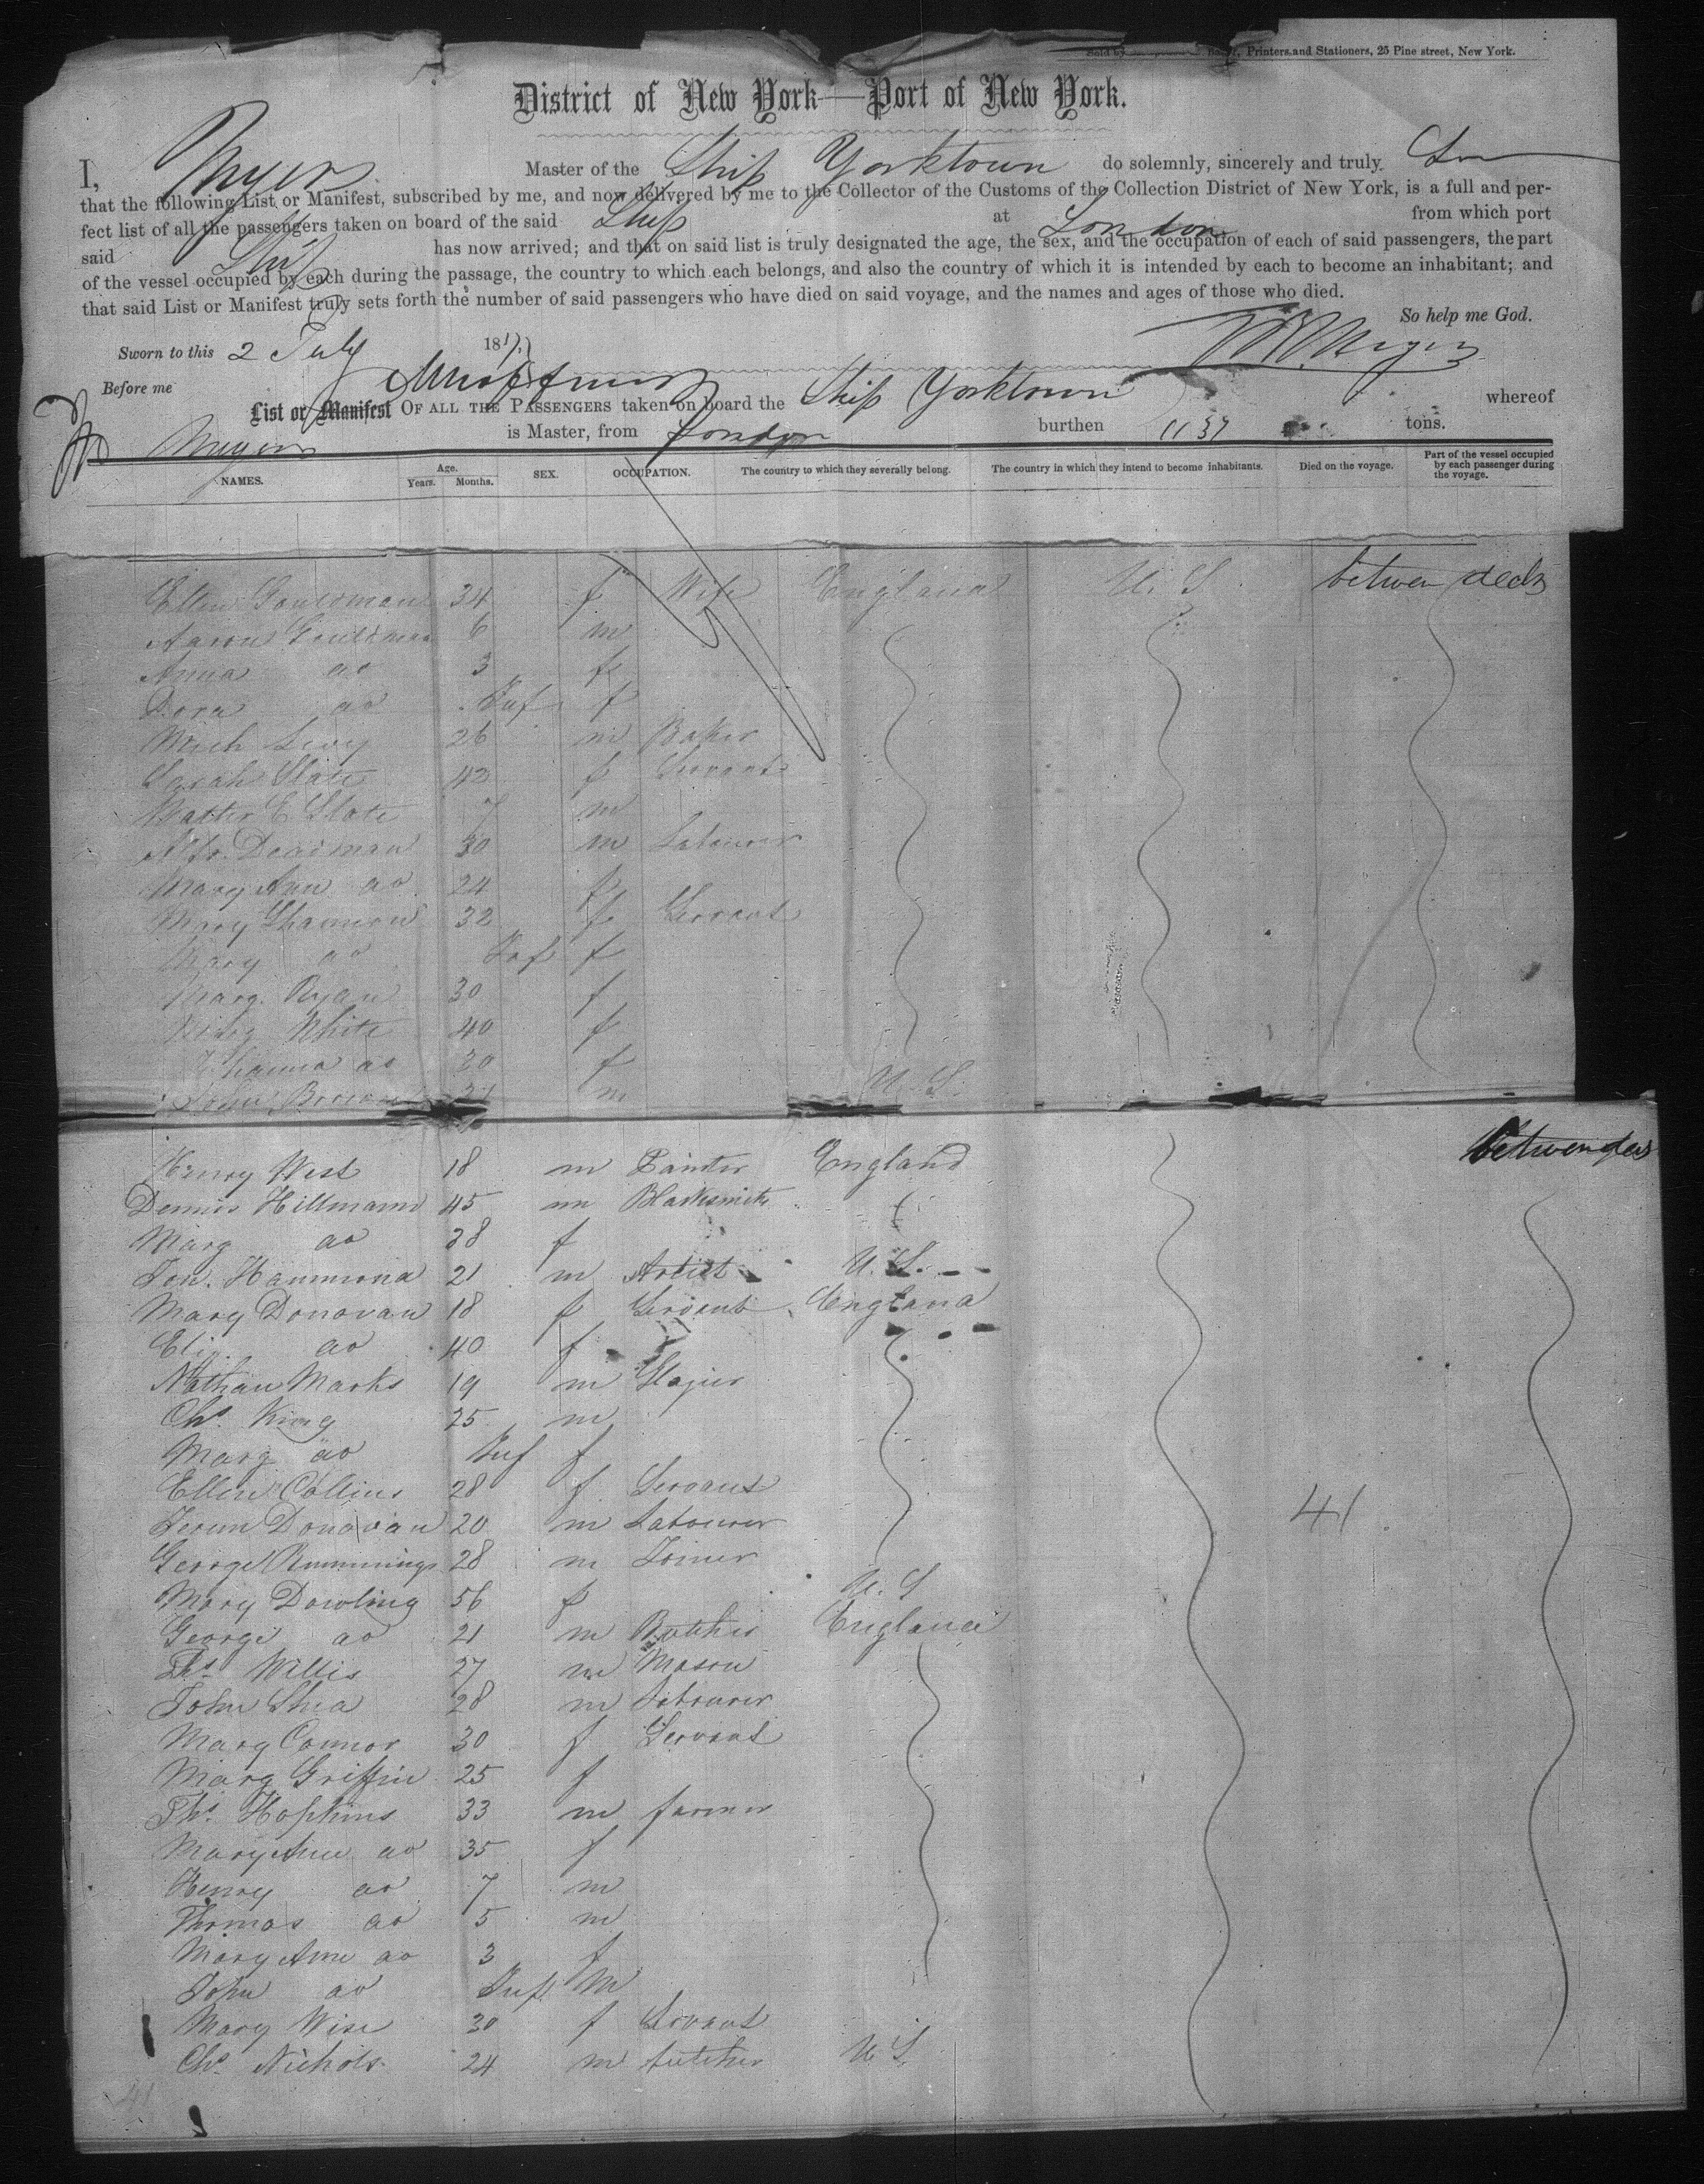 Printers and Stationers, 25 Pine street, New York.
District of New York—Port of New York.
I, Myers Master of the Ship Yorktown do solemnly, sincerely and truly
that the following List or Manifest, subscribed by me, and now delivered by me to the Collector of the Customs of the Collection District of New York, is a full and per-
fect list of all the passengers taken on board of the said Ship at London from which port
said Ship has now arrived; and that on said list is truly designated the age, the sex, and the occupation of each of said passengers, the part
of the vessel occupied by each during the passage, the country to which each belongs, and also the country of which it is intended by each to become an inhabitant; and
that said List or Manifest truly sets forth the number of said passengers who have died on said voyage, and the names and ages of those who died.
So help me God.
Sworn to this 2 July 18
Before me
List or Manifest OF ALL THE PASSENGERS taken on board the Ship Yorktown whereof
Meyers is Master, from London burthen 1137 tons.
NAMES. Age. Years. Months. SEX. OCCUPATION. The country to which they severally belong. The country in which they intend to become inhabitants. Died on the voyage. Part of the vessel occupied by each passenger during the voyage.
Ellen Gouldman 34 f Wife England U. S between decks
Aaron Gouldman 6 m
Anna do 3 f
Dora do Inf f
Mich Levy 26 m Baker
Sarah Slate 42 f Servant
Walter E Slate 7 m
Deadman 30 m Labourer
Mary Ann do 24 f
Mary Shannon 32 f Servant
Mary do Inf f
Marg. Ryan 30 f
White 40 f
do 20 f
John Brown m U. S.
Henry West 18 m Painter England
Dennis Hillmann 45 m Blacksmith
Marg do 38 f
Jon. Hammond 21 m Artist U. S.
Mary Donovan 18 f Servant England
Eliz do 40 f
Nathan Marks 19 m Glazier
Chs. King 25 m
Marg do Inf f
Ellen Collins 28 f Servant
Donovan 20 m Labourer 41
George Rummings 28 m Joiner
Mary Dowling 56 f U. S
George do 21 m Butcher England
Ths. Willis 27 m Mason
John Shea 28 m Labourer
Mary Connor 30 f Servant
Marg Griffin 25 f
Ths. Hopkins 33 m farmer
Mary Ann do 35 f
Henry do 7 m
Thomas do 5 m
Mary Ann do 3 f
John do Inf M
Mary Wise 30 f Servant
Chs. Nichols 24 m butcher U S.